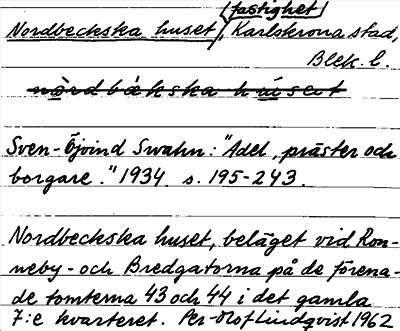 (fastighet)
Nordbeckska huset, Karlskrona stad,
Blek. l.
nòrdbækska húset
Sven-Öjvind Swahn: "Adel, präster och
borgare." 1934. s. 195-243.
Nordbeckska huset, beläget vid Ron-
neby- och Bredgatorna på de förena-
de tomterna 43 och 44 i det gamla
7:e kvarteret. Per-Olof Lindqvist 1962